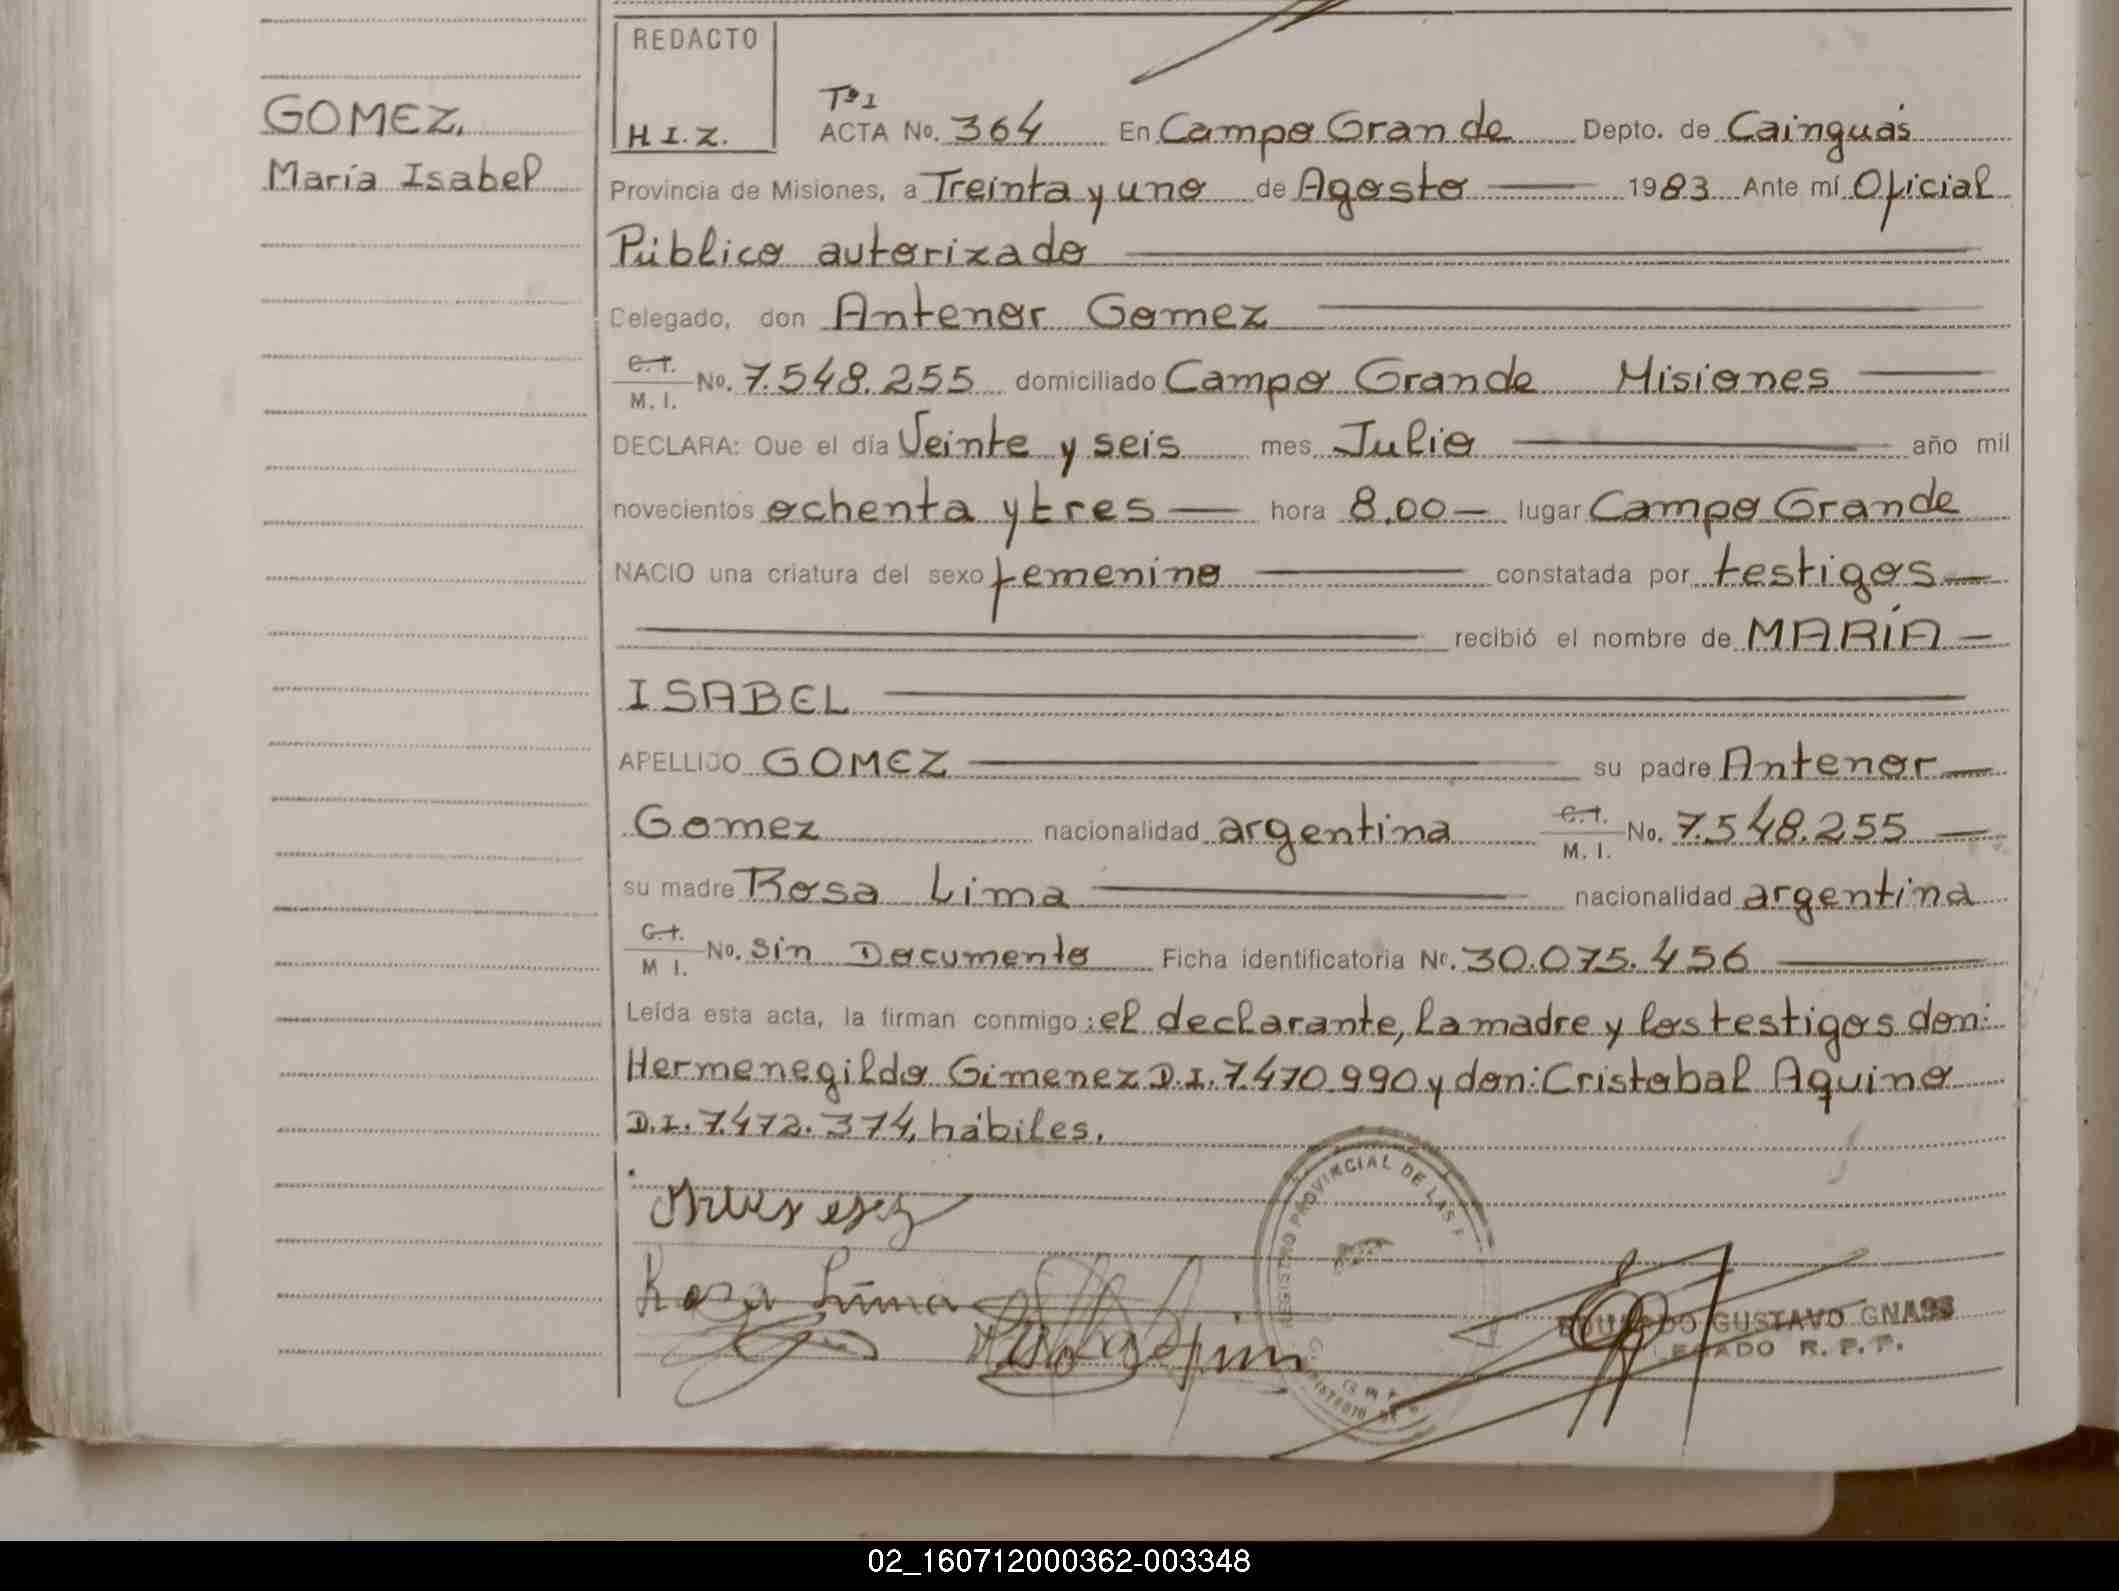 REDACTO
GOMEZ,
María Isabel
H.I.Z.
Tº1
ACTA No. 364 En Campo Grande Depto. de Cainguás
Provincia de Misiones, a Treinta y uno de Agosto 1983 Ante mí Oficial
Público autorizado
Celegado, don Antenor Gomez
C.I.
M. I. No. 7.548.255 domiciliado Campo Grande Misiones
DECLARA: Que el día Veinte y seis mes Julio año mil
novecientos ochenta y tres hora 8,00 lugar Campo Grande
NACIO una criatura del sexo femenino constatada por testigos
recibió el nombre de MARÍA
ISABEL
APELLIDO GOMEZ su padre Antenor
Gomez nacionalidad argentina C.I. M. I. No. 7.548.255
su madre Rosa Lima nacionalidad argentina
C.I.
M I. No. sin Documento Ficha identificatoria No. 30.075.456
Leída esta acta, la firman conmigo: el declarante, la madre y los testigos don:
Hermenegildo Gimenez D.I. 7.470.990 y don: Cristobal Aquino
D.I. 7.472.374, hábiles.
REGISTRO PROVINCIAL DE LAS
Rosa Lima
EDUARDO GUSTAVO GNASS
R. P. P.
02_160712000362-003348